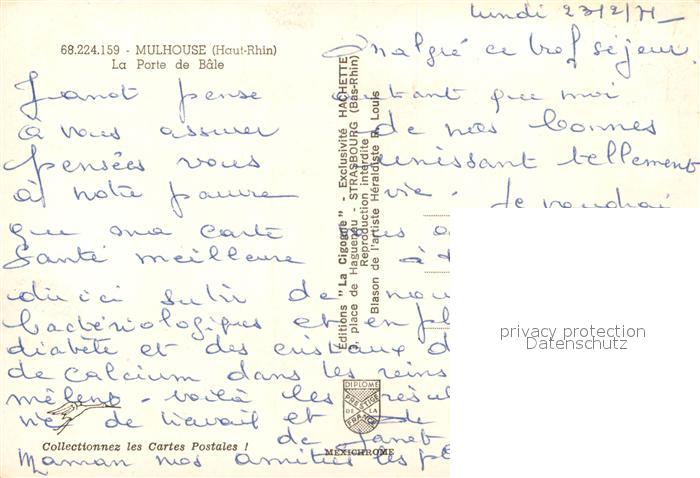 lundi 23/2/71
68.224.159 - MULHOUSE (Haut-Rhin)
La Porte de Bâle
Malgré ce bref séjour.
Janot pense autant que moi
à vous assurer de nos bonnes
pensées vous unissant tellement
à notre pauvre vie. Je voudrai
que ma carte vous
Santé meilleure à
d'ici subir de
bactériologiques et en
diabète et des cristaux
de calcium dans les reins
voilà les
de travail et de
de Janot
Maman nos amitiés les
Editions "La Cigogne" - Exclusivité HACHETTE
, place de Haguenau - STRASBOURG (Bas-Rhin)
Reproduction interdite
Blason de l'artiste Héraldiste R. Louis
DIPLOME
PRESTIGE
DE LA
FRANCE
MEXICHROME
Collectionnez les Cartes Postales !
privacy protection
Datenschutz